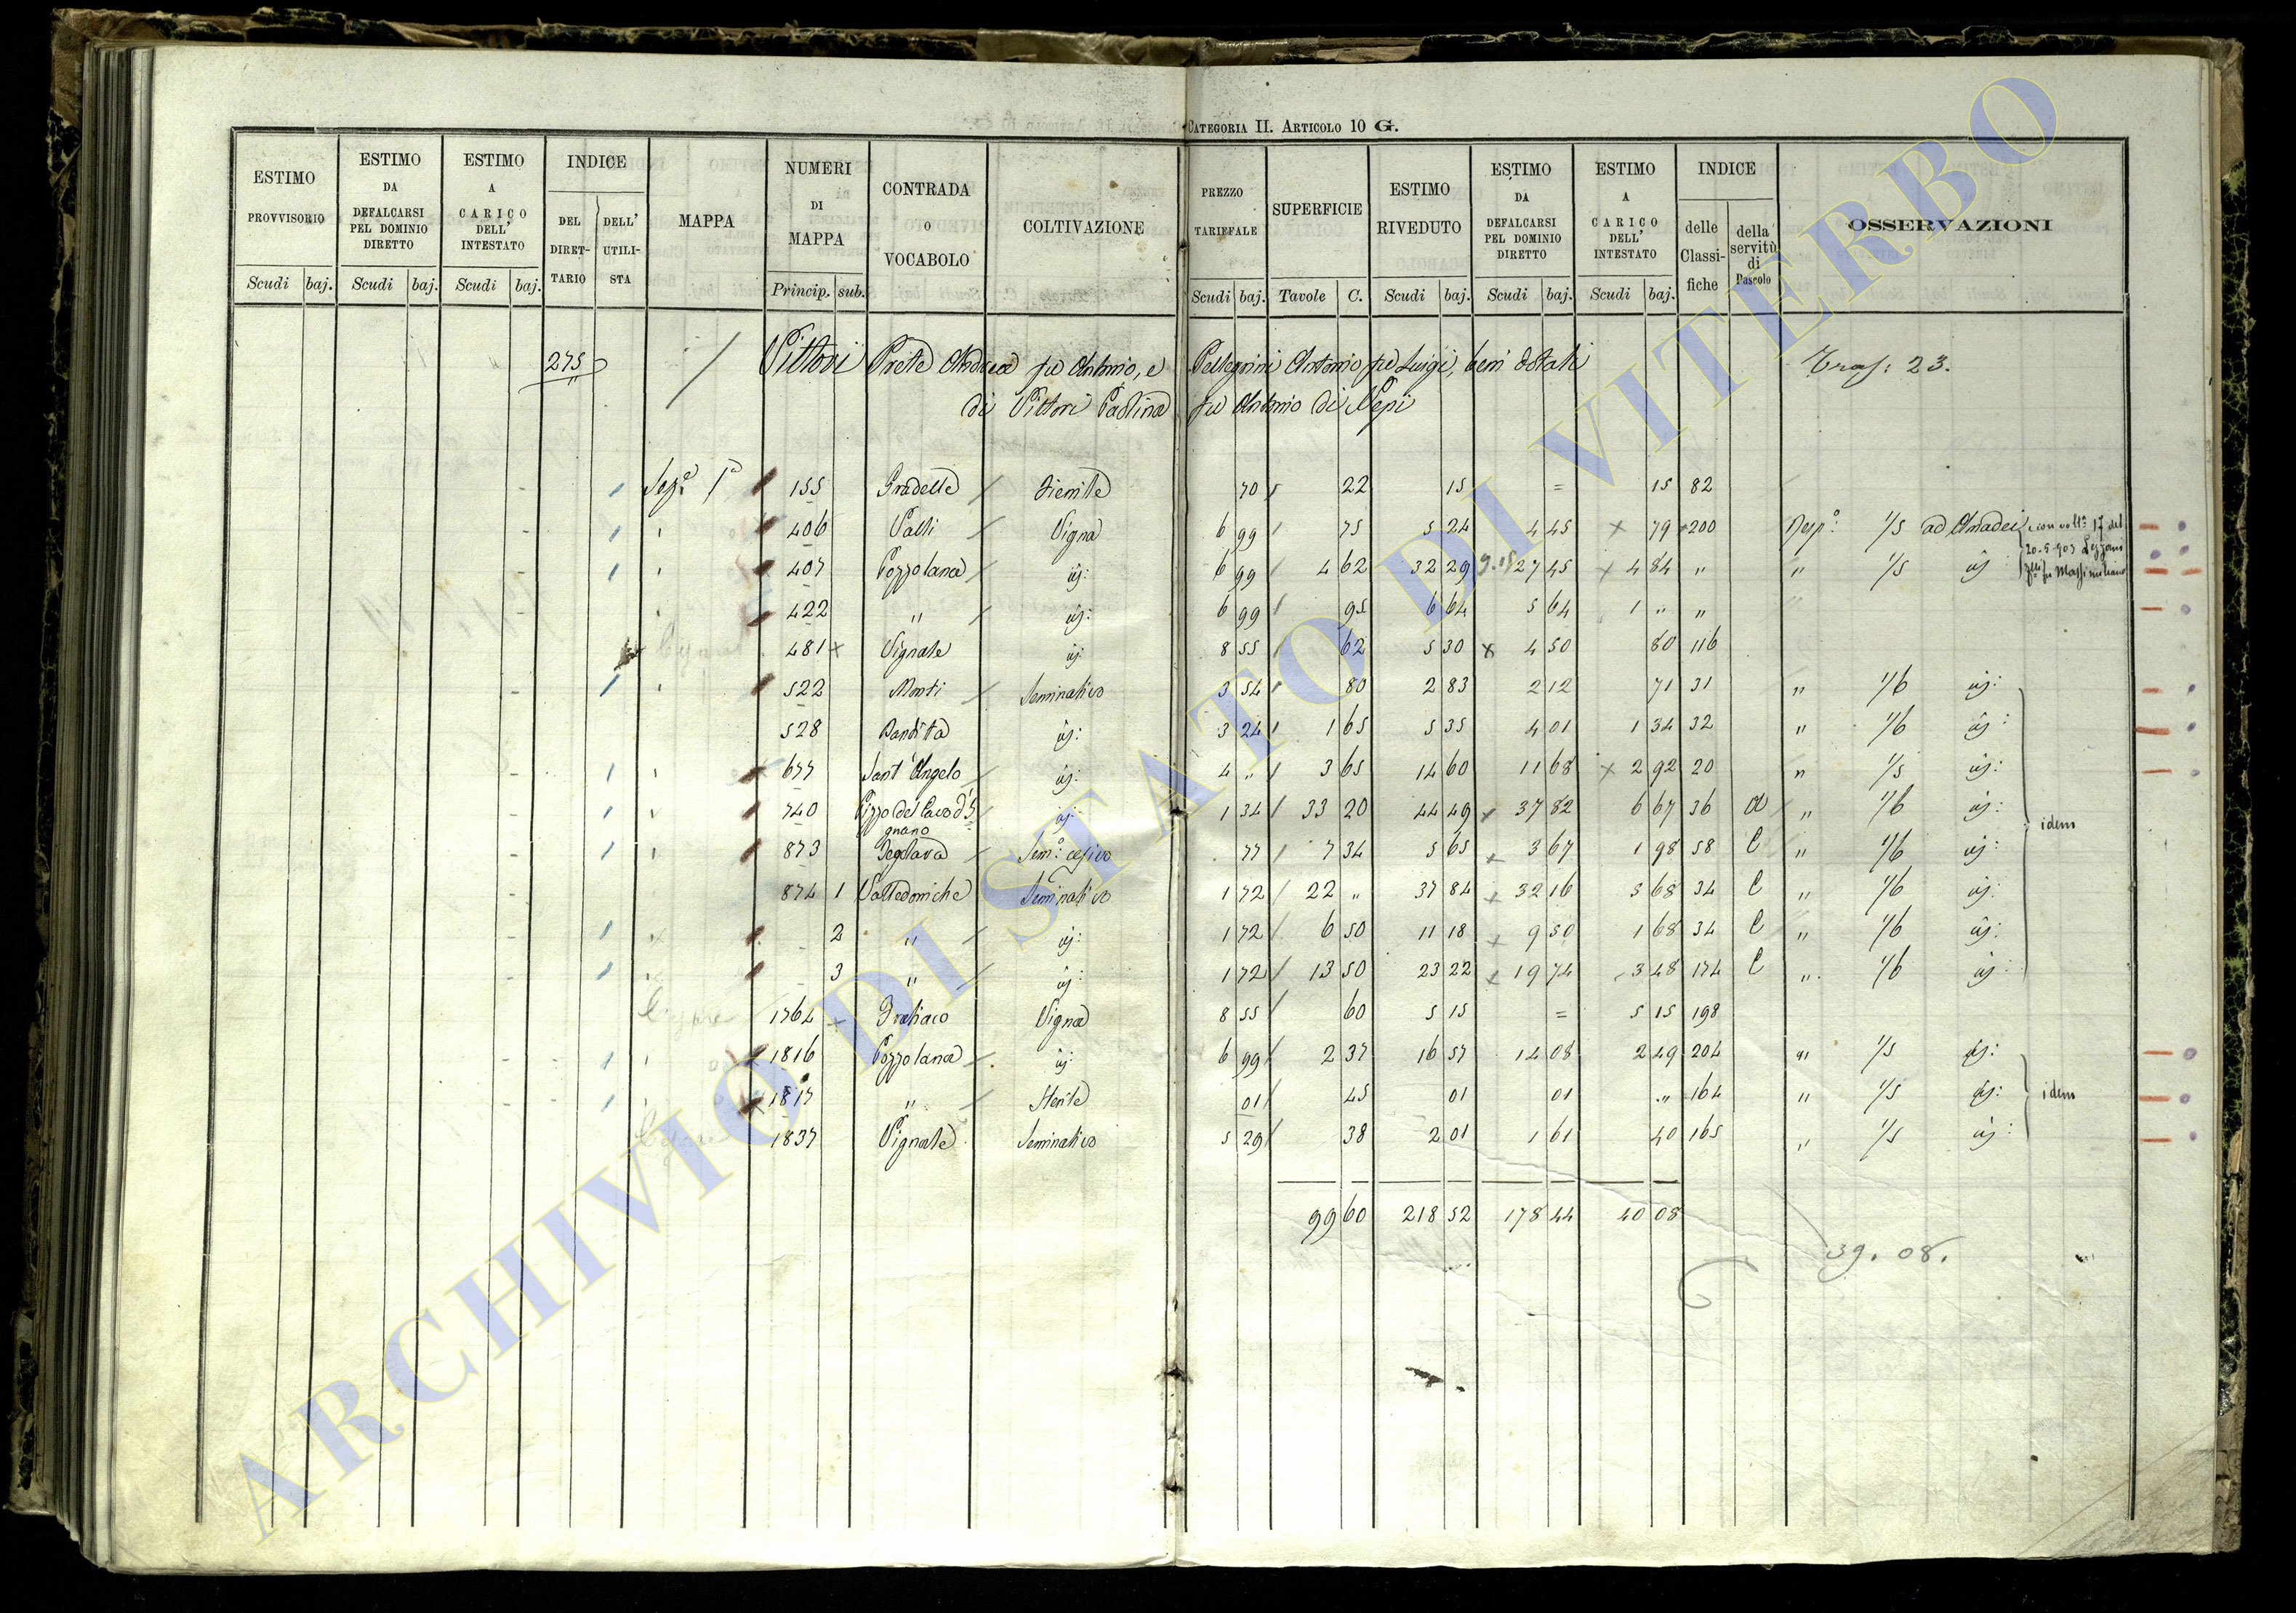 CATEGORIA II. ARTICOLO 10 G.
ESTIMO PROVVISORIO Scudi baj. ESTIMO DA DEFALCARSI PEL DOMINIO DIRETTO Scudi baj. ESTIMO A CARICO DELL' INTESTATO Scudi baj. INDICE DEL DIRETTARIO DELL' UTILISTA MAPPA NUMERI DI MAPPA Princip. sub. CONTRADA O VOCABOLO COLTIVAZIONE PREZZO TARIFFALE Scudi baj. SUPERFICIE Tavole C. ESTIMO RIVEDUTO Scudi baj. ESTIMO DA DEFALCARSI PEL DOMINIO DIRETTO Scudi baj. ESTIMO A CARICO DELL' INTESTATO Scudi baj. INDICE delle Classifiche della servitù di Pascolo OSSERVAZIONI
275 Vittori Prete Andrea fu Antonio, e Pellegrini Antonio fu Luigi, beni dotali Tras: 23.
di Vittori Paolina fu Antonio di Nepi
155 Pradelle 70 22 15 = 15 82
406 Valli Vigna 6 99 75 5 24 4 45 79 200 1/5 ad Amadei
407 Pozzolana id: 6 99 4 62 32 29 27 45 4 84 " " 1/5 id
422 " id: 6 99 95 6 64 5 64 1 " "
481 Vignale id 8 55 62 5 30 4 50 80 116
522 Monti Seminativo 3 54 80 2 83 2 12 71 31 " 1/6 id:
528 Bandita id: 3 24 1 65 5 35 4 01 1 34 32 " 1/6 id:
677 Sant'Angelo id: 4 " 3 65 14 60 11 68 2 92 20 " 1/5 id:
740 id: 1 34 33 20 44 49 37 82 6 67 36 " 1/6 id: idem
873 Sem: cesivo 77 7 34 5 65 3 67 1 98 58 " 1/6 id:
874 1 Valledoniche Seminativo 1 72 22 " 37 84 32 16 5 68 34 " 1/6 id:
2 " id: 1 72 6 50 11 18 9 50 1 68 34 " 1/6 id:
3 " id: 1 72 13 50 23 22 19 74 3 48 174 " 1/6 id:
1764 Vigna 8 55 60 5 15 = 5 15 198
1816 Pozzolana id: 6 99 2 37 16 57 14 08 2 49 204 " 1/5 id:
1817 " Sterile 01 45 01 01 " 164 " 1/5 id: idem
1837 Vignale Seminativo 5 29 38 2 01 1 61 40 165 " 1/5 id:
99 60 218 52 178 44 40 08
39.08.
ARCHIVIO DI STATO DI VITERBO